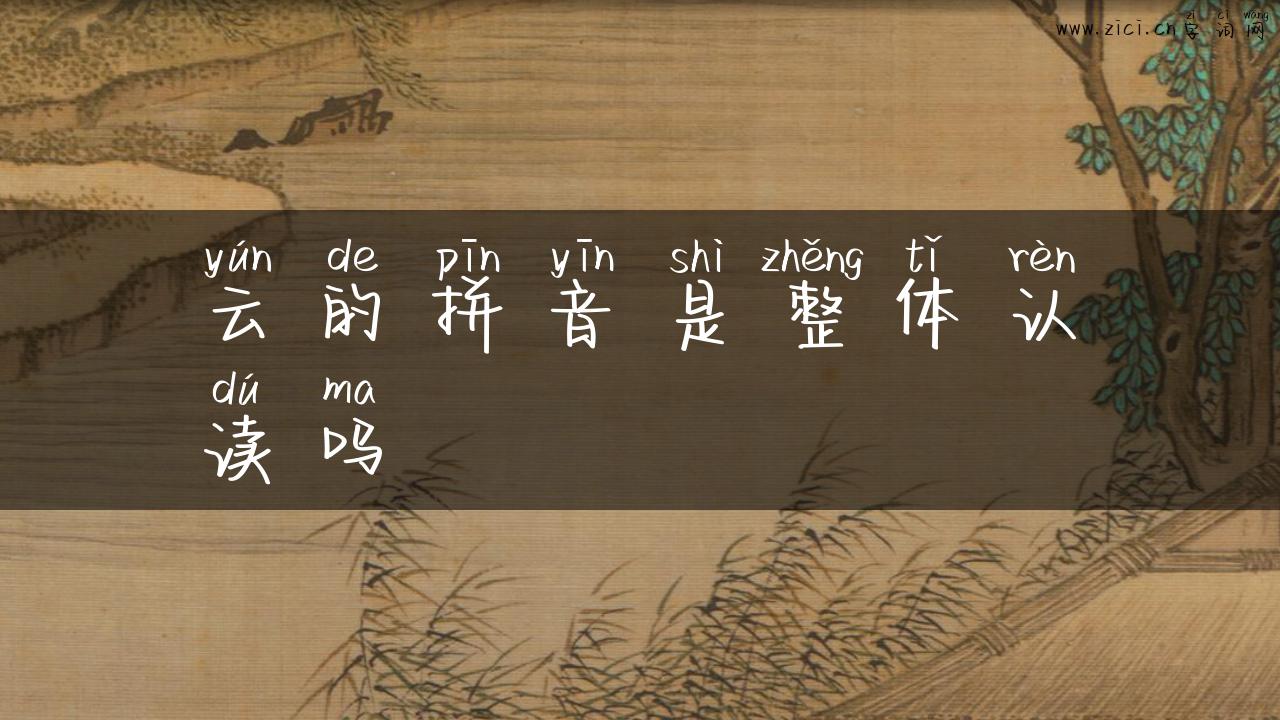 zì cí wǎng
www.zici.cn字词网
yún de pīn yīn shì zhěng tǐ rèn
云的拼音是整体认
dú ma
读吗